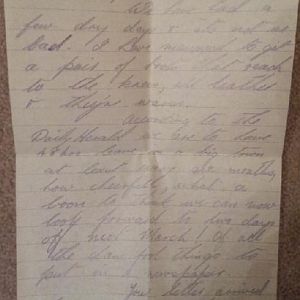 We have had a
few dry days & it's not so
bad. I have managed to get
a pair of boots that reach
to the knee, in leather
& they're warm.
According to the
Daily Herald we are to have
48 hrs leave in a big town
at least once a month,
how cheerful, what a
boon to think we can now
look forward to two days
off next March! Of all
the damn fool things to
put in a newspaper.
Your letter arrived